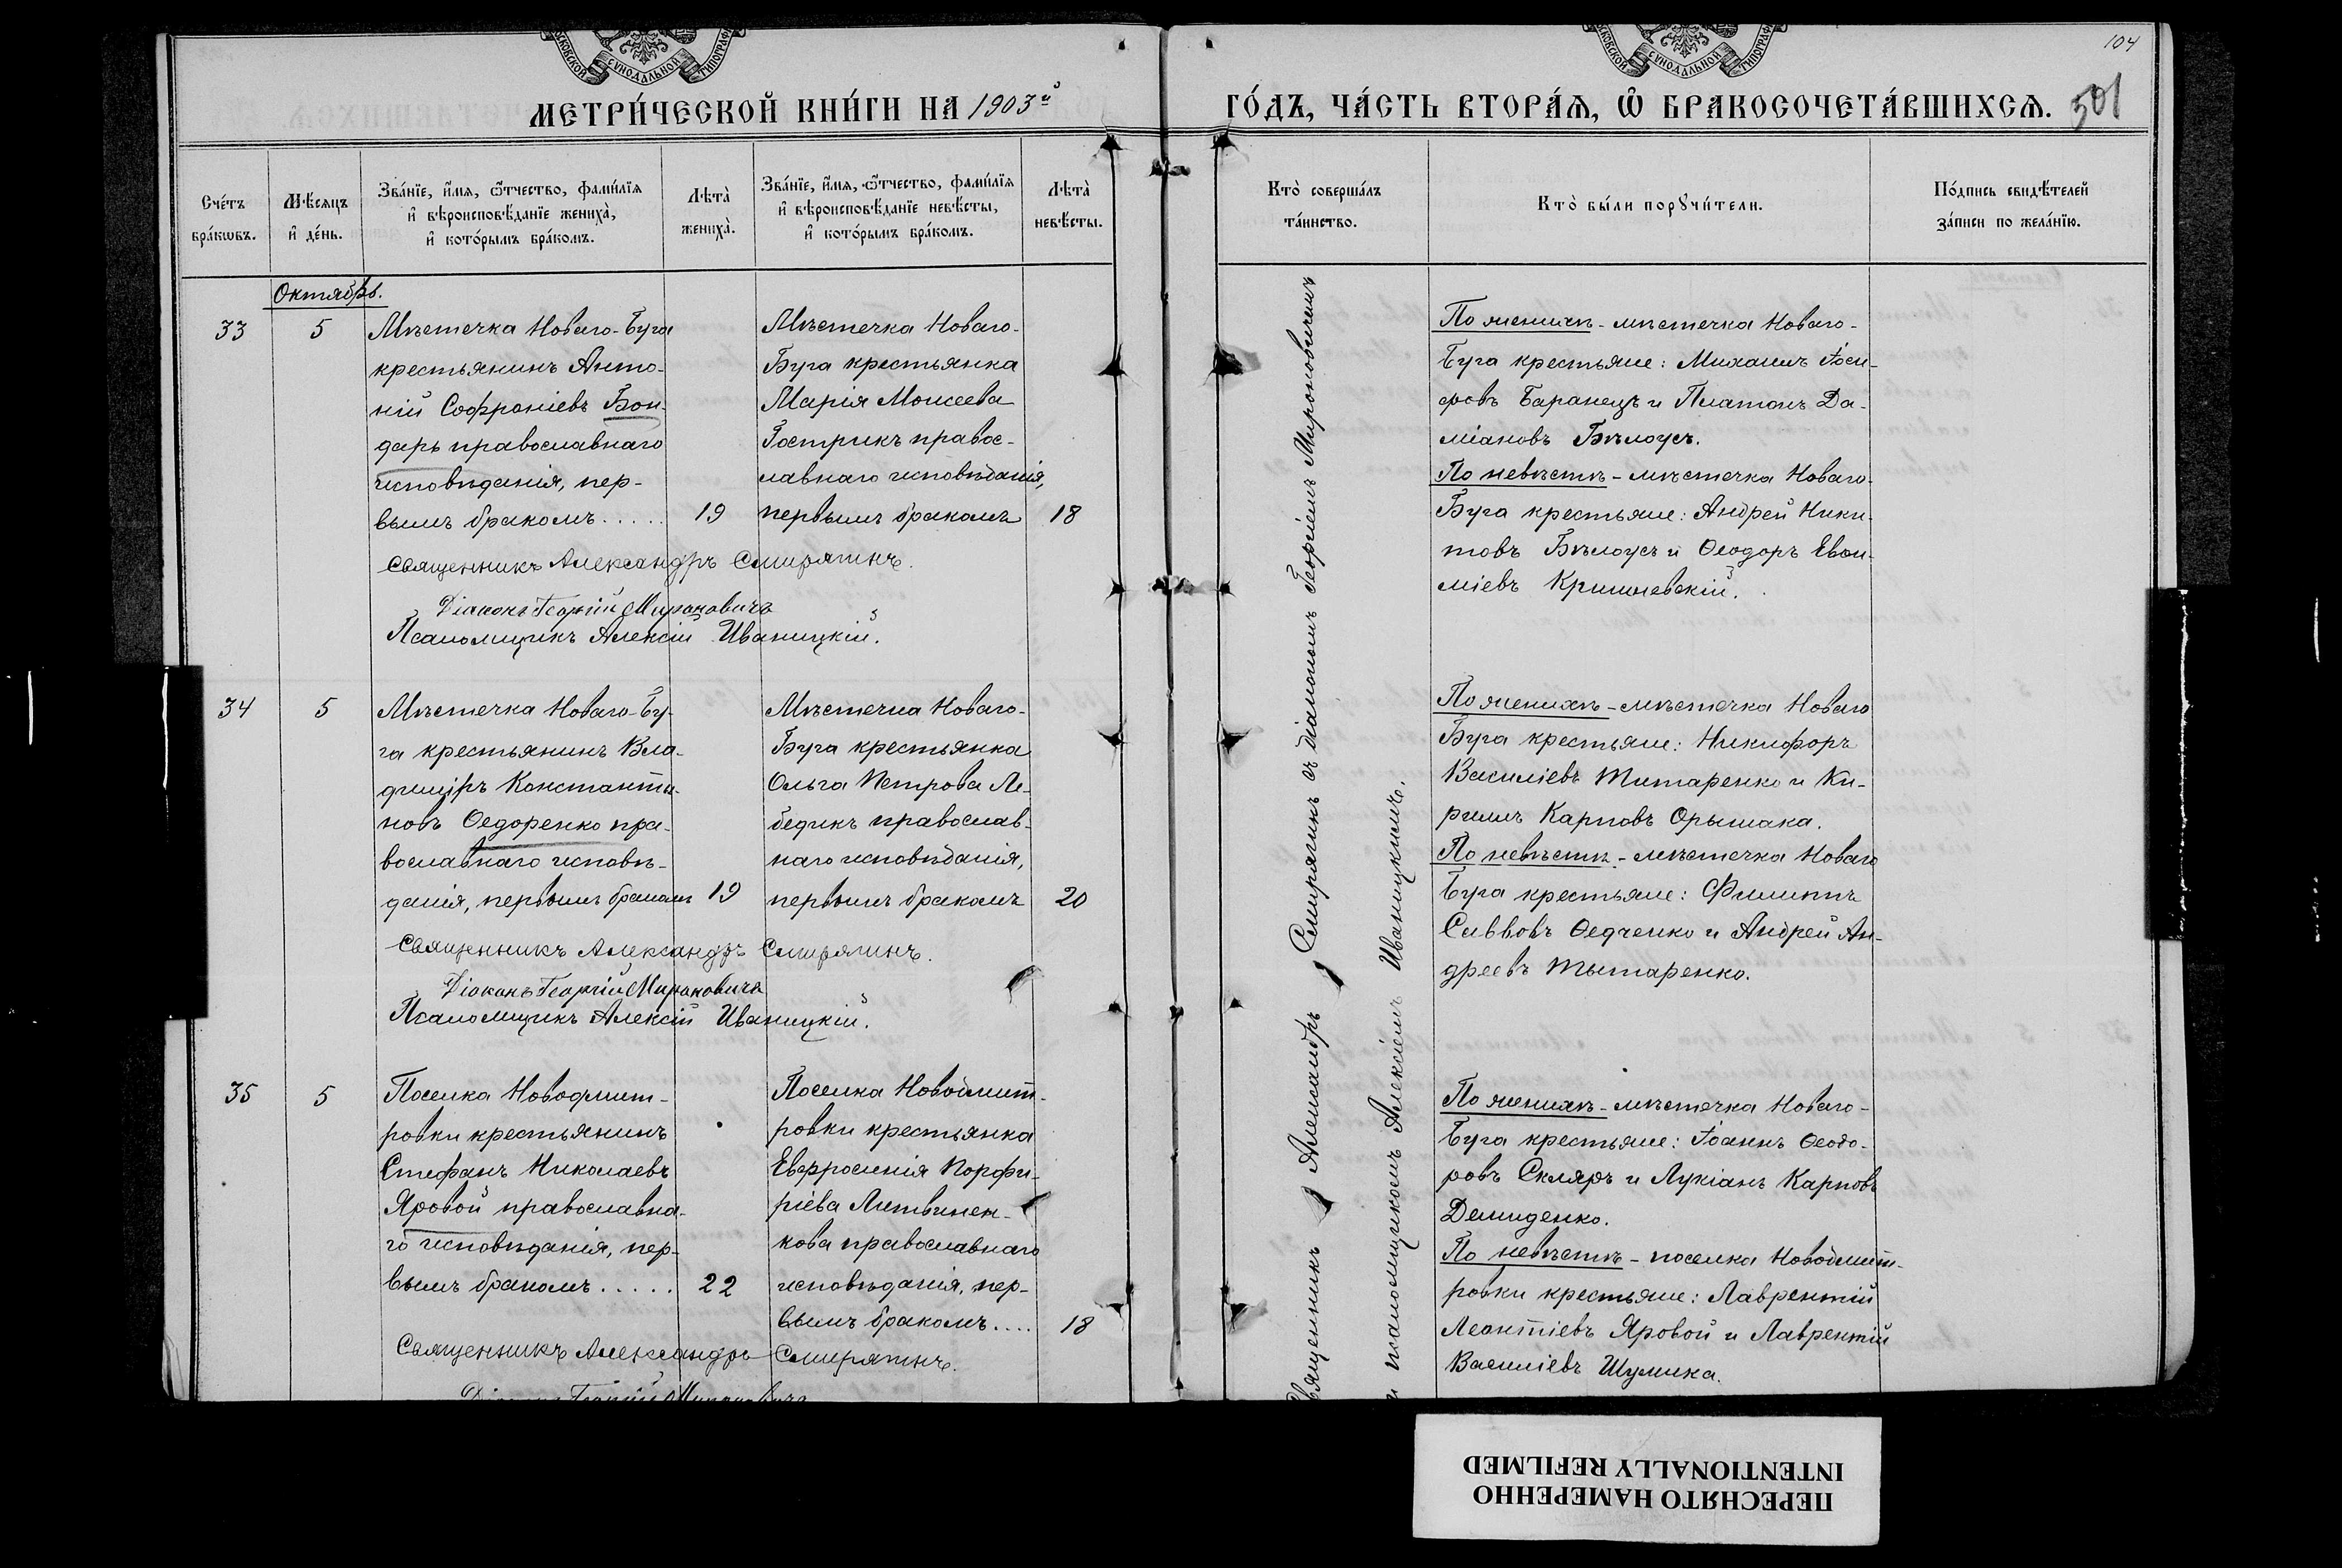 МОСКОВСКОЙ СѴНОДАЛЬНОЙ ТИПОГРАФ
МЕТРИ́ЧЕСКОЙ КНИ́ГИ НА 1903й
Сче́тъ бра́кωвъ.
Мѣ́сяцъ и҆ де́нь.
Зва́нїе, и҆́мя, ѻ҆́тчество, фами́лїя
и҆ вѣроисповѣ́данїе жениха̀,
и҆ кото́рымъ бра́комъ.
Лѣта̀ жениха̀.
Зва́нїе, и҆́мя, ѻ҆́тчество, фами́лїя
и҆ вѣроисповѣ́данїе невѣ́сты,
и҆ кото́рымъ бра́комъ.
Лѣта̀ невѣ́сты.
Октябрь.
33
5
Мѣстечка Новаго-Буга
крестьянинъ Анто-
ній Софроніевъ Бон-
дарь православнаго
исповѣданія, пер-
вымъ бракомъ.....
19
Мѣстечка Новаго-
Буга крестьянка
Марія Моисеева
Гострикъ правос-
лавнаго исповѣданія,
первымъ бракомъ
18
Священникъ Александръ Смирягинъ.
Діаконъ Георгій Мироновичъ
Псаломщикъ Алексій Иваницкій.
34
5
Мѣстечка Новаго-Бу-
га крестьянинъ Вла-
димиръ Константи-
новъ Ѳедоренко пра-
вославнаго исповѣ-
данія, первымъ бракомъ
19
Мѣстечка Новаго-
Буга крестьянка
Ольга Петрова Ле-
бедикъ православ-
наго исповѣданія,
первымъ бракомъ
20
Священникъ Александръ Смирягинъ.
Діаконъ Георгій Мироновичъ
Псаломщикъ Алексій Иваницкій.
35
5
Поселка Новодмит-
ровки крестьянинъ
Стефанъ Николаевъ
Яровой православна-
го исповѣданія, пер-
вымъ бракомъ.....
22
Поселка Новодмит-
ровки крестьянка
Евфросинія Порфи-
ріева Литвинен-
кова православнаго
исповѣданія, пер-
вымъ бракомъ....
18
Священникъ Александръ Смирягинъ.
Діаконъ Георгій Мироновичъ
МОСКОВСКОЙ СѴНОДАЛЬНОЙ ТИПОГРАФ
104
ГО́ДЪ, ЧА́СТЬ ВТОРА́Я, Ѽ БРАКОСОЧЕТА́ВШИХСЯ.
501
Кто̀ соверша́лъ
та́инство.
Кто̀ бы́ли порꙋчи́тели.
По́дпись свидѣ́телей
за́писи по жела́нїю.
Священникъ Александръ Смирягинъ съ діакономъ Георгіемъ Мироновичемъ
и псаломщикомъ Алексіемъ Иваницкимъ.
По женихѣ - мѣстечка Новаго-
Буга крестьяне: Михаилъ Іоси-
фовъ Баранецъ и Платонъ Да-
міановъ Бѣлоусъ.
По невѣстѣ - мѣстечка Новаго-
Буга крестьяне: Андрей Ники-
товъ Бѣлоусъ и Ѳеодоръ Евѳи-
міевъ Кришневскій.
По женихѣ - мѣстечка Новаго
Буга крестьяне: Никифоръ
Василіевъ Титаренко и Ки-
риллъ Карповъ Орышака.
По невѣстѣ - мѣстечка Новаго
Буга крестьяне: Филиппъ
Саввовъ Ѳедченко и Андрей Ан-
дреевъ Тытаренко.
По женихѣ - мѣстечка Новаго-
Буга крестьяне: Іоаннъ Ѳеодо-
ровъ Скляръ и Лукіанъ Карповъ
Демиденко.
По невѣстѣ - поселка Новодмит-
ровки крестьяне: Лаврентій
Леонтіевъ Яровой и Лаврентій
Василіевъ Шулика.
ПЕРЕСНЯТО НАМЕРЕННО
INTENTIONALLY REFILMED